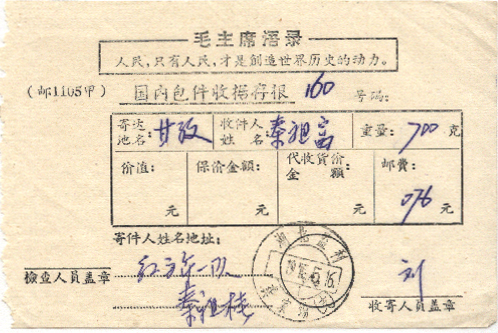 毛主席语录
人民,只有人民,才是創造世界历史的动力。
(邮1105甲) 国内包件收据存根 160 号碼:
寄达地名: 甘孜 收件人姓名: 秦祖富 重量: 700 克
价值: 元 保价金額: 元 代收貨价金額: 元 邮費: 076 元
寄件人姓名地址:
红 一队
秦祖
檢查人员蓋章
湖北 利
刘
收寄人员蓋章